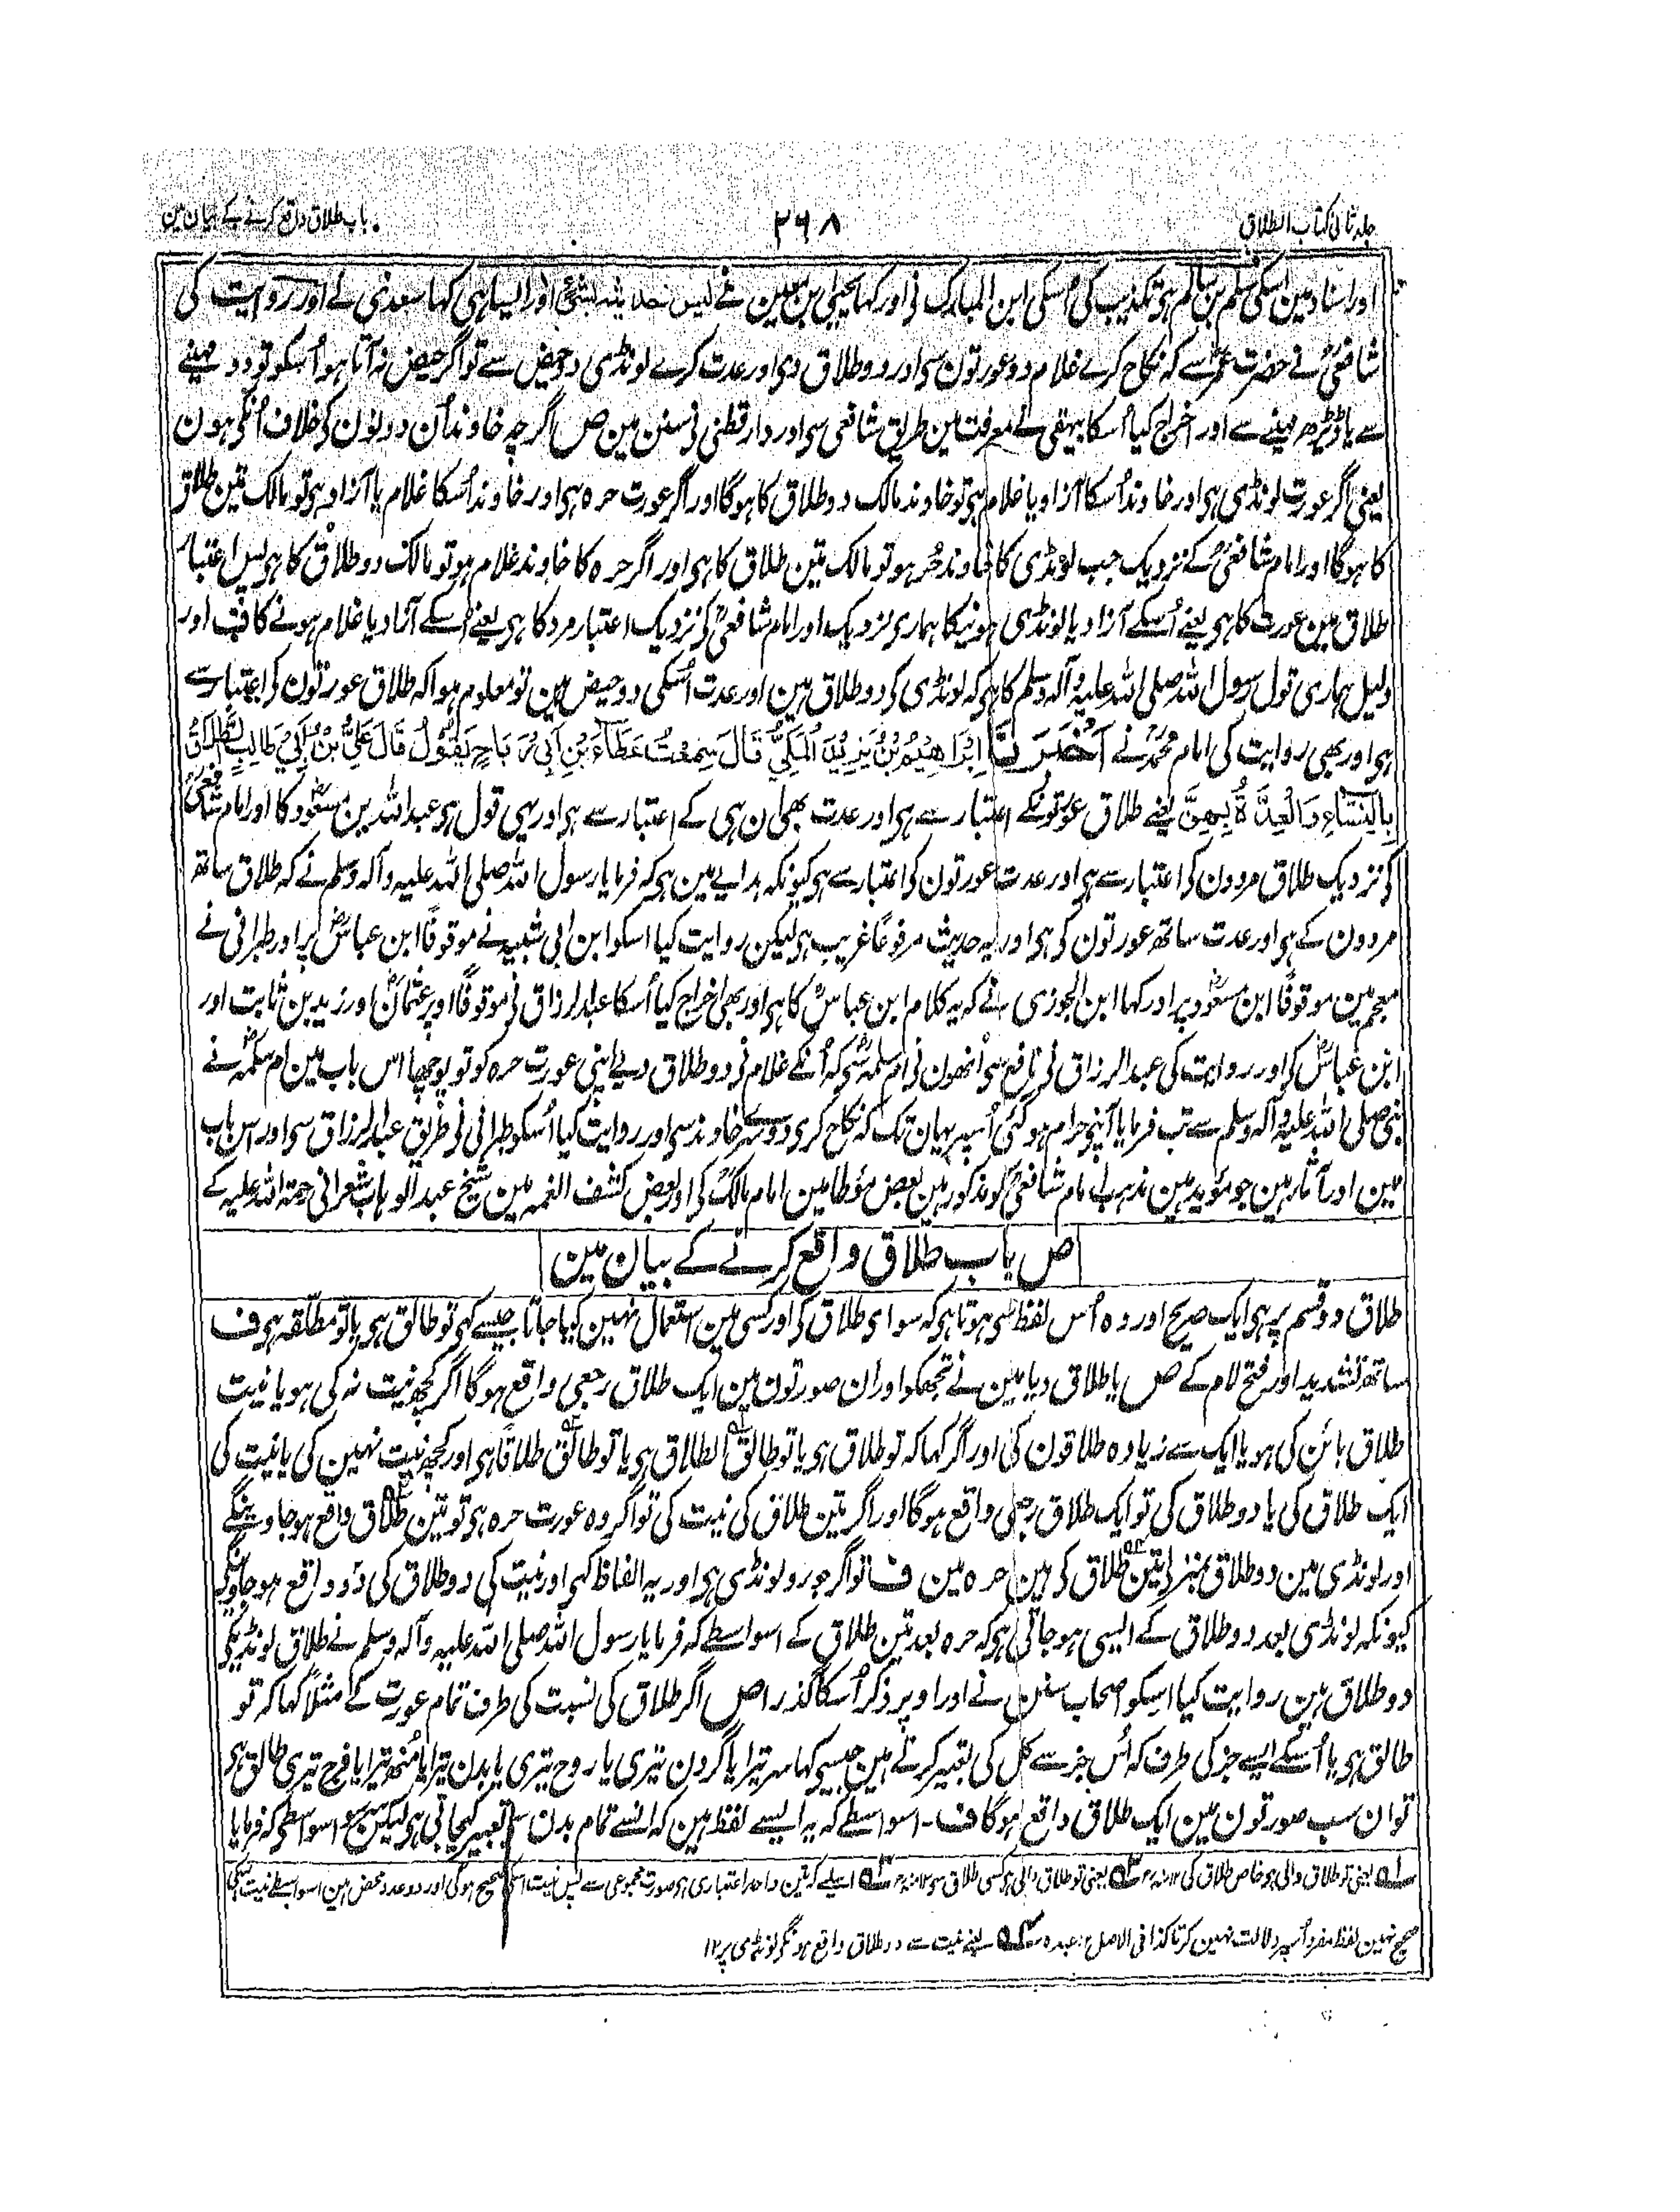 جلد ثانی کتاب الطلاق
۲۶۸
باب طلاق واقع کرنے کے بیان مین
اور اسناد مین اسکی سلم بن سالم ہی تکذیب کی اُسکی ابن المبارک نی اور کہا یحییٰ بن معین نے لیس حدیثہ بشئ اور ایسا ہی کہا سعدی نے اور روایت کی
شافعیؒ نے حضرت عمرؓ سے کہ نکاح کرے غلام دو عورتون سی اور دو طلاق دی اور عدت کرے لونڈی دو حیض سے تو اگر حیض نہ آتا ہو اُسکو تو دو مہینے
سے یا ڈیڑھ مہینے سے اور اخراج کیا اُسکا بیہقی نے معرفت مین طریق شافعی سی اور دارقطنی نی سنن مین ص اگرچہ خاوند اُن دونون کی خلاف اُنکی ہون
یعنی اگر عورت لونڈی ہی اور خاوند اُسکا آزاد یا غلام ہی تو خاوند مالک دو طلاق کا ہوگا اور اگر عورت حرہ ہی اور خاوند اُسکا غلام یا آزاد ہی تو مالک تین طلاق
کا ہوگا اور امام شافعیؒ کے نزدیک جب لونڈی کا خاوند حُر ہو تو مالک تین طلاق کا ہی اور اگر حرہ کا خاوند غلام ہو تو مالک دو طلاق کا ہی پس اعتبار
طلاق مین عورت کا ہی یعنے اُسکے آزاد یا لونڈی ہونیکا ہماری نزدیک اور امام شافعیؒ کی نزدیک اعتبار مرد کا ہی یعنے اُسکے آزاد یا غلام ہونے کا ف اور
دلیل ہماری قول رسول اللہ صلی اللہ علیہ وآلہ وسلم کا ہی کہ لونڈی کی دو طلاق ہین اور عدت اُسکی دو حیض ہین تو معلوم ہوا کہ طلاق عورتون کی اعتبار سے
ہی اور بھی روایت کی امام محمدؒ نے اَخْبَرَنَا اِبْرَاهِيْمُ بْنُ يَزِيْدَ الْمَكِّيُّ قَالَ سَمِعْتُ عَطَاءَ بْنَ اَبِيْ رَبَاحٍ يَقُوْلُ قَالَ عَلِيُّ بْنُ اَبِيْ طَالِبٍ الطَّلَاقُ
بِالنِّسَاءِ وَالْعِدَّةُ بِهِنَّ یعنے طلاق عورتونکے اعتبار سے ہی اور عدت بھی ان ہی کے اعتبار سے ہی اور یہی قول ہی عبداللہ بن مسعودؓ کا اور امام شافعیؒ
کی نزدیک طلاق مردون کی اعتبار سے ہی اور عدت عورتون کی اعتبار سے ہی کیونکہ ہدایے مین ہی کہ فرمایا رسول اللہ صلی اللہ علیہ وآلہ وسلم نے کہ طلاق ساتھ
مردون کے ہی اور عدت ساتھ عورتون کی ہی اور یہ حدیث مرفوعًا غریب ہی لیکن روایت کیا اسکو ابن ابی شیبہ نے موقوفًا ابن عباسؓ پر اور طبرانی نے
معجم مین موقوفًا ابن مسعودؓ پر اور کہا ابن الجوزی نے کہ یہ کلام ابن عباسؓ کا ہی اور بھی اخراج کیا اُسکا عبدالرزاق نی موقوفًا اوپر عثمانؓ اور زید بن ثابت اور
ابن عباسؓ کی اور روایت کی عبدالرزاق نی نافع سی اُنھون نی ام سلمہؓ سی کہ اُنکے غلام نی دو طلاق دیے اپنی عورت حرہ کو تو پوچھا اس باب مین ام سلمہؓ نے
نبی صلی اللہ علیہ وآلہ وسلم سے تب فرمایا آپنی حرام ہوگئی اُسپر یہان تک کہ نکاح کری دوسرے خاوند سی اور روایت کیا اُسکو طبرانی نی طریق عبدالرزاق سی اور اس باب
مین اور آثار ہین جو مؤید ہین مذہب امام شافعیؒ کو مذکور ہین بعض مؤطا مین امام مالکؒ کی اور بعض کشف الغمہ مین شیخ عبدالوہاب شعرانی رحمۃ اللہ علیہ کے
ص باب طلاق واقع کرنے کے بیان مین
طلاق دو قسم پر ہی ایک صریح اور وہ اُس لفظ سی ہوتا ہی کہ سوای طلاق کی اور کسی مین استعمال نہین کیا جاتا جیسے کہی تو طالق ہی یا تو مطلّقہ ہی ف
ساتھ تشدید اور فتح لام کے ص یا طلاق دیا مین نے تجھکو اور ان صورتون مین ایک طلاق رجعی واقع ہوگا اگر کچھ نیت نہ کی ہو یا نیت
طلاق بائن کی ہو یا ایک سے زیادہ طلاقون کی اور اگر کہا کہ تو طلاق ہی یا تو طالق الطلاق ہی یا تو طالق طلاقًا ہی اور کچھ نیت نہین کی یا نیت کی
ایک طلاق کی یا دو طلاق کی تو ایک طلاق رجعی واقع ہوگا اور اگر تین طلاق کی نیت کی تو اگر وہ عورت حرہ ہی تو تین طلاق واقع ہو جاوینگے
اور لونڈی مین دو طلاق بمنزلہ تین طلاق کی ہین حرہ مین ف تو اگر جورو لونڈی ہی اور یہ الفاظ کہی اور نیت کی دو طلاق کی دو واقع ہو جاوینگی
کیونکہ لونڈی بعد دو طلاق کے ایسی ہو جاتی ہی کہ حرہ بعد تین طلاق کے اسواسطے کہ فرمایا رسول اللہ صلی اللہ علیہ وآلہ وسلم نے طلاق لونڈیکی
دو طلاق ہین روایت کیا اسکو اصحاب سنن نے اور اوپر ذکر اُسکا گذرا ص اگر طلاق کی نسبت کی طرف تمام عورت کے مثلاً کہا کہ تو
طالق ہی یا اُسکے ایسے جز کی طرف کہ اُس جز سے کل کی تعبیر کرتے ہین جیسے کہا سر تیرا یا گردن تیری یا روح تیری یا بدن تیرا یا مُنھ تیرا یا فرج تیری طالق ہی
تو ان سب صورتون مین ایک طلاق واقع ہوگا ف - اسواسطے کہ یہ ایسے لفظ ہین کہ انسے تمام بدن سے تعبیر کیجاتی ہی لیکن اسواسطے کہ فرمایا
لہ یعنی تو طلاق والی ہی خاص طلاق کی ۱۲ منہ یعنی تو طلاق والی ہی کسی طلاق سی ۱۲ منہ اسلیے کہ تین واحد اعتباری ہی صورت مجموعی سے پس نیت اسکی صحیح ہوگی اور دو عدد محض ہین اسواسطے نیت اسکی
صحیح نہین لفظ مفرد اُسپر دلالت نہین کرتا کذا فی الاصل عبدہ یعنے نیت سے دو طلاق واقع ہونگے لونڈی پر ۱۲